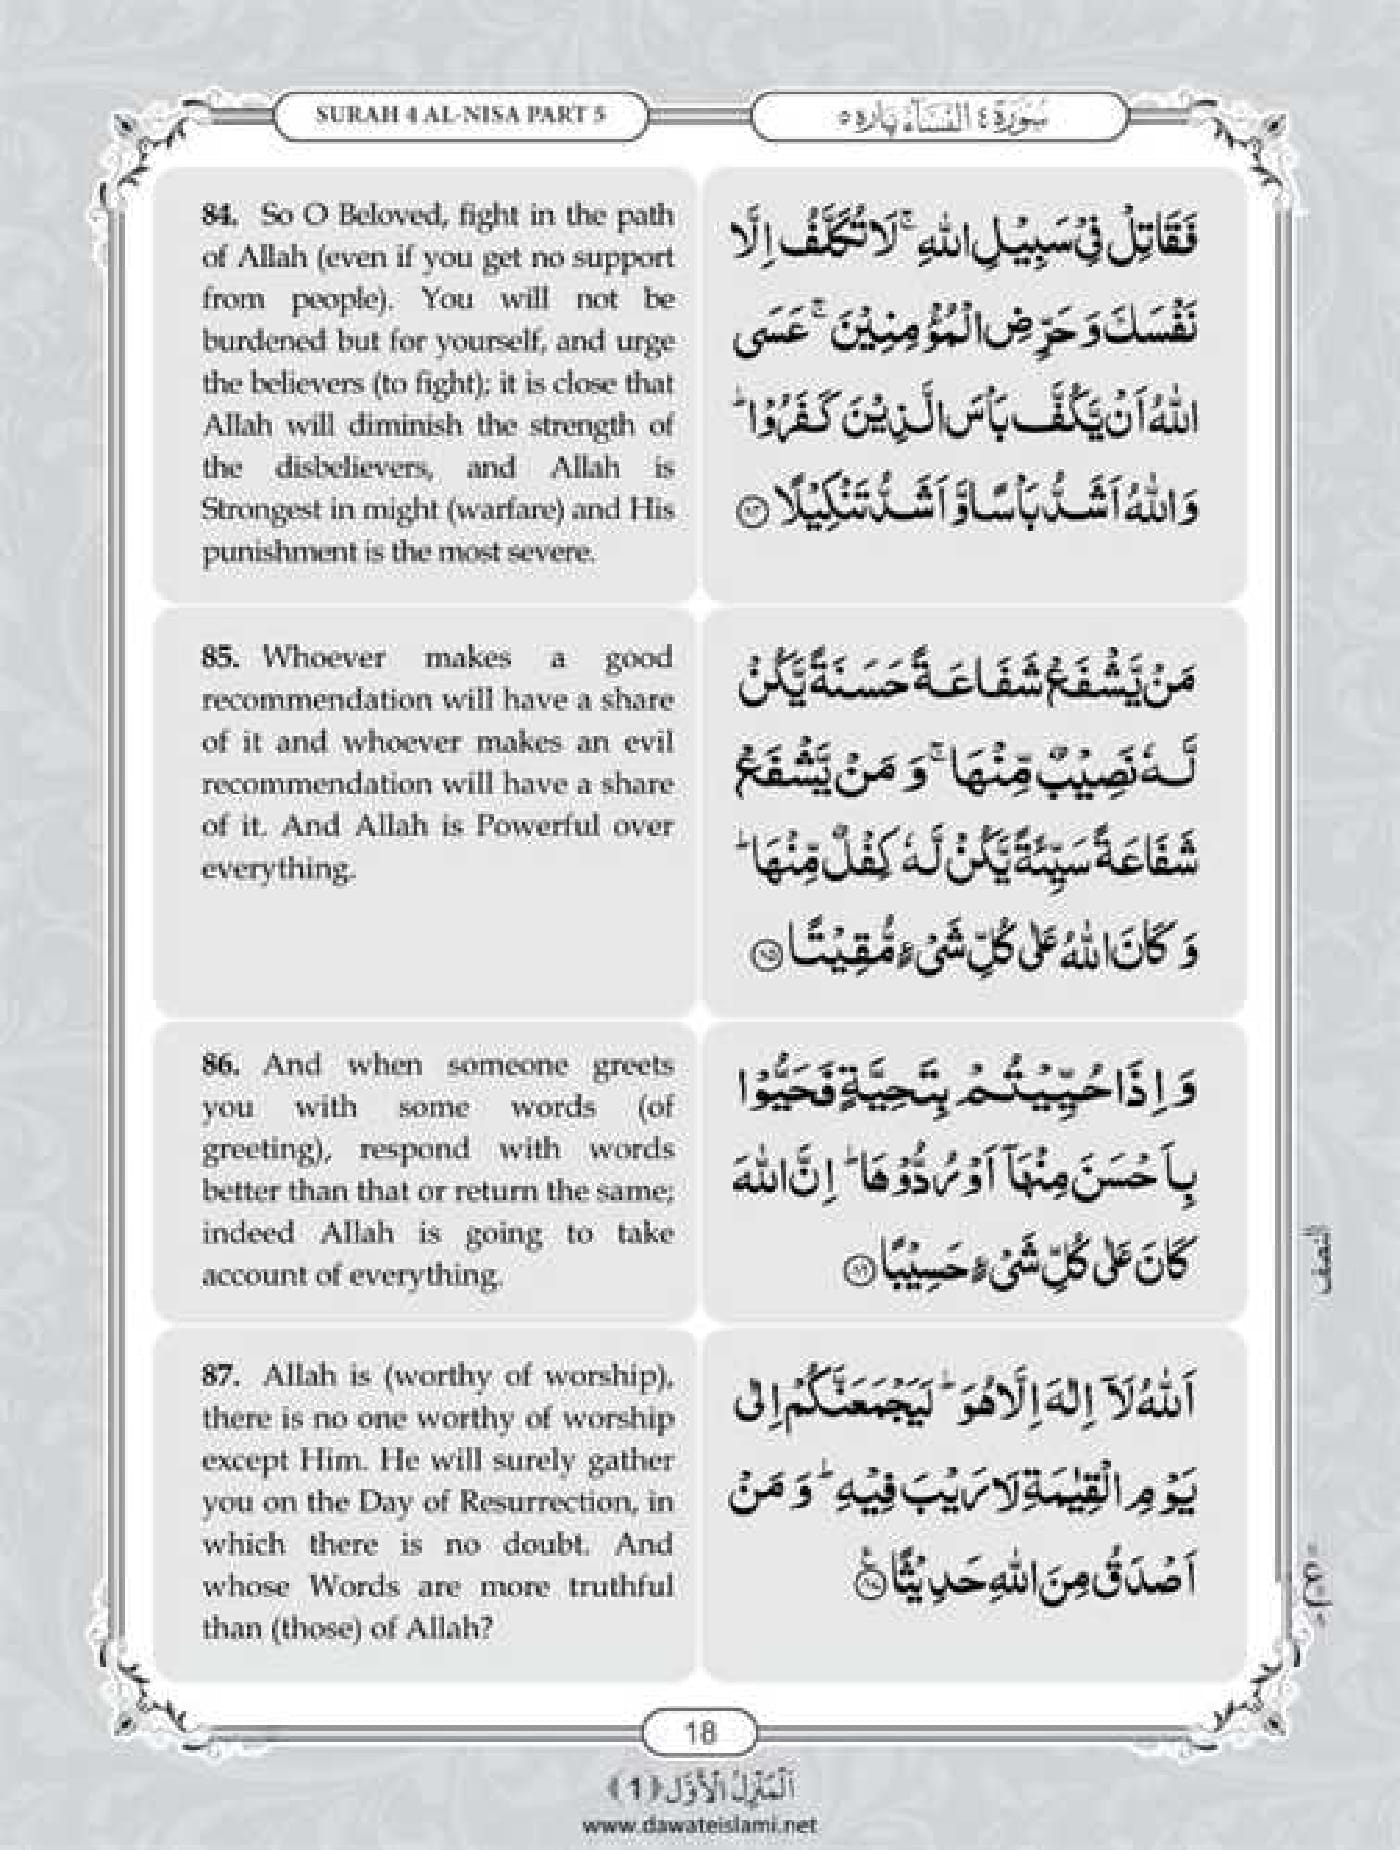 SURAH 4 AL-NISA PART 5
سُوْرَة ٤ النِّسَآء پاره ٥
84. So O Beloved, fight in the path
of Allah (even if you get no support
from people). You will not be
burdened but for yourself, and urge
the believers (to fight); it is close that
Allah will diminish the strength of
the disbelievers, and Allah is
Strongest in might (warfare) and His
punishment is the most severe.
فَقَاتِلْ فِیْ سَبِیْلِ اللّٰهِ ۚ لَا تُكَلَّفُ اِلَّا
نَفْسَكَ وَ حَرِّضِ الْمُؤْمِنِیْنَ ۚ عَسَی
اللّٰهُ اَنْ یَّكُفَّ بَاْسَ الَّذِیْنَ كَفَرُوْا ؕ
وَ اللّٰهُ اَشَدُّ بَاْسًا وَّ اَشَدُّ تَنْكِیْلًا ﴿۸۴﴾
85. Whoever makes a good
recommendation will have a share
of it and whoever makes an evil
recommendation will have a share
of it. And Allah is Powerful over
everything.
مَنْ یَّشْفَعْ شَفَاعَةً حَسَنَةً یَّكُنْ
لَّهٗ نَصِیْبٌ مِّنْهَا ۚ وَ مَنْ یَّشْفَعْ
شَفَاعَةً سَیِّئَةً یَّكُنْ لَّهٗ كِفْلٌ مِّنْهَا ؕ
وَ كَانَ اللّٰهُ عَلٰی كُلِّ شَیْءٍ مُّقِیْتًا ﴿۸۵﴾
86. And when someone greets
you with some words (of
greeting), respond with words
better than that or return the same;
indeed Allah is going to take
account of everything.
وَ اِذَا حُیِّیْتُمْ بِتَحِیَّةٍ فَحَیُّوْا
بِاَحْسَنَ مِنْهَاۤ اَوْ رُدُّوْهَا ؕ اِنَّ اللّٰهَ
كَانَ عَلٰی كُلِّ شَیْءٍ حَسِیْبًا ﴿۸۶﴾
87. Allah is (worthy of worship),
there is no one worthy of worship
except Him. He will surely gather
you on the Day of Resurrection, in
which there is no doubt. And
whose Words are more truthful
than (those) of Allah?
اَللّٰهُ لَاۤ اِلٰهَ اِلَّا هُوَ ؕ لَیَجْمَعَنَّكُمْ اِلٰی
یَوْمِ الْقِیٰمَةِ لَا رَیْبَ فِیْهِ ؕ وَ مَنْ
اَصْدَقُ مِنَ اللّٰهِ حَدِیْثًا ﴿۸۷﴾
النصف
18
اَلْمَنْزِلُ الْاَوَّل ﴿1﴾
www.dawateislami.net